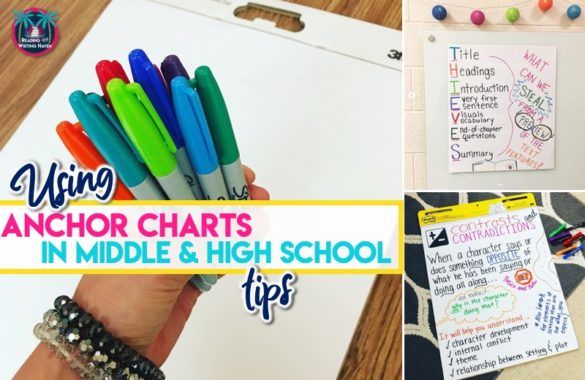 READING and
WRITING HAVEN
Using
ANCHOR CHARTS
IN MIDDLE & HIGH SCHOOL
tips
3M
Title
Headings
Introduction
Every first
sentence
Visuals
Vocabulary
End-of-chapter
questions
Summary
WHAT
CAN WE
STEAL
FROM A
PREVIEW
OF THE
TEXT
FEATURES?
contrasts and
CONTRADICTIONS
When a character says or
does something OPPOSITE of
what he has been saying or
doing all along...
ask yourself:
Why is the character
doing that?
It will help you understand...
✓ character development
✓ internal conflict
✓ theme
✓ relationship between setting & plot
* Also look
for elements of
setting that
are
not what you
expect!